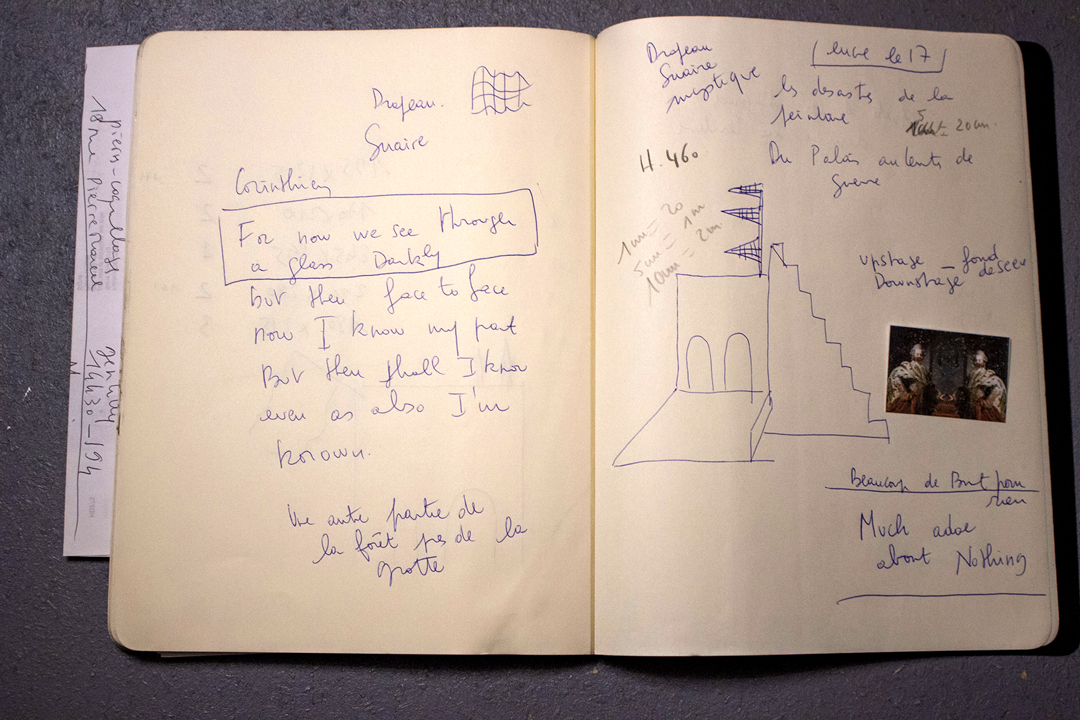 Drapeau.
Suaire
Corinthien
For now we see through
a glass Darkly
but then face to face
now I know my part
But then shall I know
even as also I'm
known.
Une autre partie de
la forêt près de la
grotte
Drapeau
Suaire
mystique
les désastres de la
peinture
20 cm
H. 460
Du Palais au lents de
guerre
1cm = 20
5cm = 1m
10cm = 2m
upstage - fond
Downstage - descen
Beaucoup de Bruit pour
rien
Much adoe
about Nothing
18 rue Pierre
14h30-19h